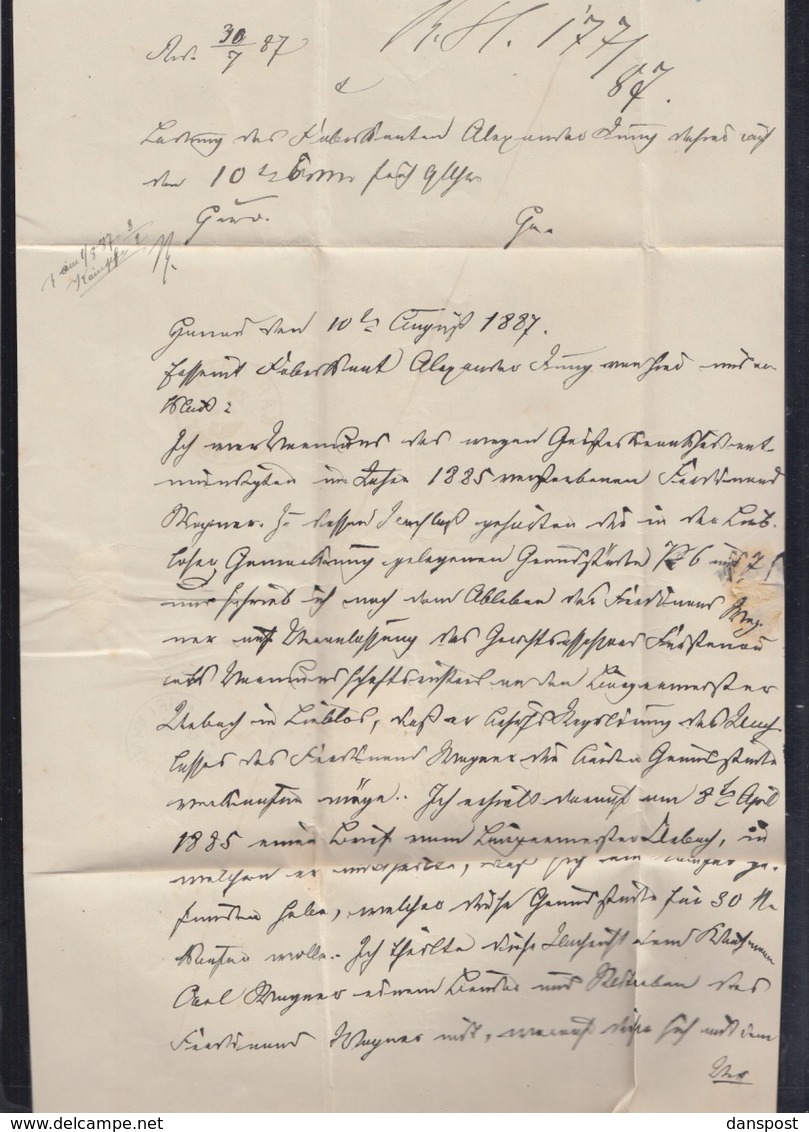 30/7 87
R. H. 177/87.
Ladung des Fabrikanten Alexander Jung dahier auf
den 10ten
den 10ten August 1887.
Erscheint Fabrikant Alexander Jung von hier und er-
klärt:
Ich war Vormund des wegen Geisteskrankheit ent-
mündigten im Jahre 1885 verstorbenen Ferdinand
Wagner. Zu dessen Nachlaß gehörten die in der Lieb-
loser Gemarkung gelegenen Grundstücke P 6 und 7
nun schrieb ich nach dem Ableben des Ferdinand Wag-
ner auf Veranlassung des Gerichtsassessors Fürstenau
als Vormundschaftsrichter an den Bürgermeister
Uebach in Lieblos, daß er behufs Regulirung des Nach-
lasses des Ferdinand Wagner die beiden Grundstücke
verkaufen möge. Ich erhielt darauf am 8ten April
1885 einen Brief vom Bürgermeister Uebach, in
welchem er mittheilte, daß sich ein Käufer ge-
funden habe, welcher diese Grundstücke für 30 M.
kaufen wolle. Ich theilte diese Nachricht dem Kaufmann
Carl Wagner einem Bruder und Miterben des
Ferdinand Wagner mit, worauf dieser sich mit dem
danspost